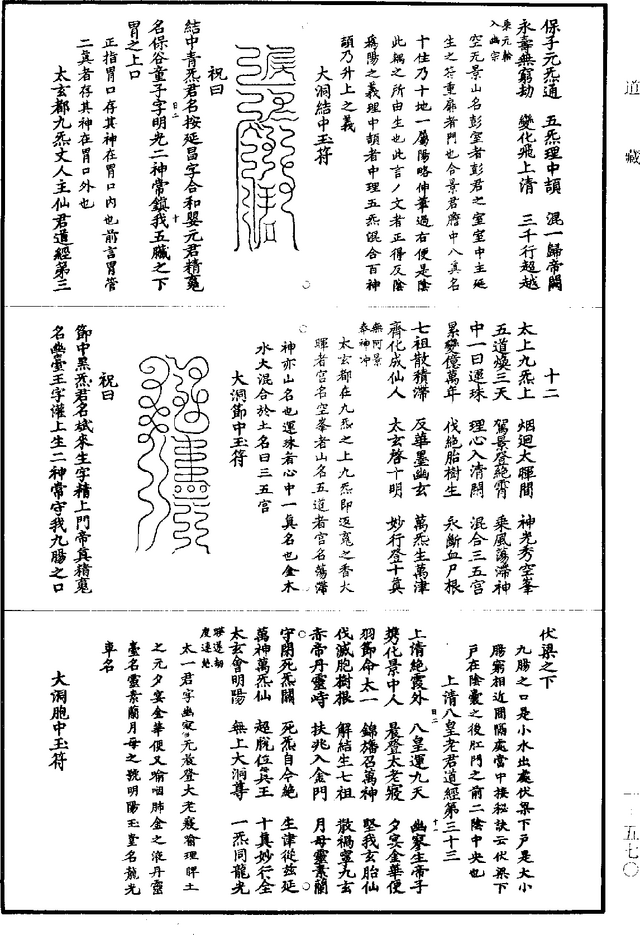 道藏
保子元炁通　五炁理中頡　混一歸帝闕
永壽無窮劫　變化飛上清　三千行超越
乘元輪
入幽宗
空无景山名彭室者彭君之室室中主延
生之符重扉者門也合景君膺中八真名
十住乃十地一屬陽略伸華過右便是陰
此耦之所由生也此言ノ文者正得反陰
爲陽之義理中頡者中理五炁混合百神
頡乃升上之義
大洞結中玉符
祝曰
結中青炁君名按延昌字合和嬰元君精䰟
名保谷童子字明光二神常鎮我五臟之下
日二　十
胃之上口
正指胃口存其神在胃口內也前言胃管
二真者存其神在胃口外也
太玄都九炁丈人主仙君道經第三
十二
太上九炁上　烟迴大暉間　神光秀空峯
五道煥三天　駕景登絶霄　乘風蕩滯神
中一日運珠　理心入清關　混合三五宮
累變億萬年　伐絶胎樹生　永斷血尸根
七祖散積滯　反華墨幽玄　萬炁生萬津
齊化成仙人　太玄啓十明　妙行登十真
無阿景
泰神冲
太玄都在九炁之上九炁即返䰟之香大
暉者宮名空峯者山名五道者宮名蕩滯
神亦山名也運珠者心中一真名也金木
水火混合於土名曰三五宮
大洞節中玉符
祝曰
節中黑炁君名斌來生字精上門帝真精䰟
名幽臺王字灌上生二神常守我九腸之口
伏梁之下
九腸之口是小水出處伏梁下戶是大小
腸窮相近間隔處當中接秘訣云伏梁下
戶在陰囊之後肛門之前二陰中央也
上清八皇老君道經第三十三
上清絶霞外　八皇運九天　幽寥生帝子
日二　十一
携化景中人　晨登太老寢　夕宴金華便
羽節命太一　錦旛召萬神　堅我玄胎仙
伐滅胞樹根　解結生七祖　散禍寧九玄
赤帝丹靈峙　扶兆入金門　月母靈素蘭
守閉死炁關　死炁自今絶　生津從茲延
萬神萬炁仙　超脫位真王　十真妙行全
太玄會明陽　無上大洞尊　一炁同龍光
太一君字幽寥无敖登大老寢喻理脾土
之元夕宴金華便又喻咽肺金之液丹靈
臺名靈素蘭月母之號明陽玉堂名龍光
車名
大洞胞中玉符
一　五七〇